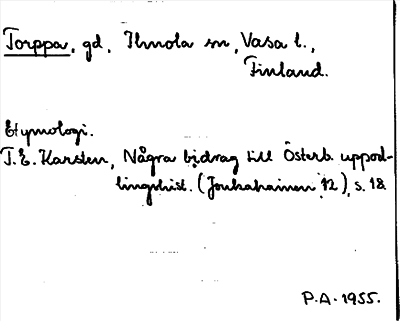 Torppa, gd, Ilmola sn, Vasa l.,
Finland.
Etymologi.
T.E. Karsten, Några bidrag till Österb. uppod-
lingshist. (Joukahainen 12), s. 18
P.A. 1955.